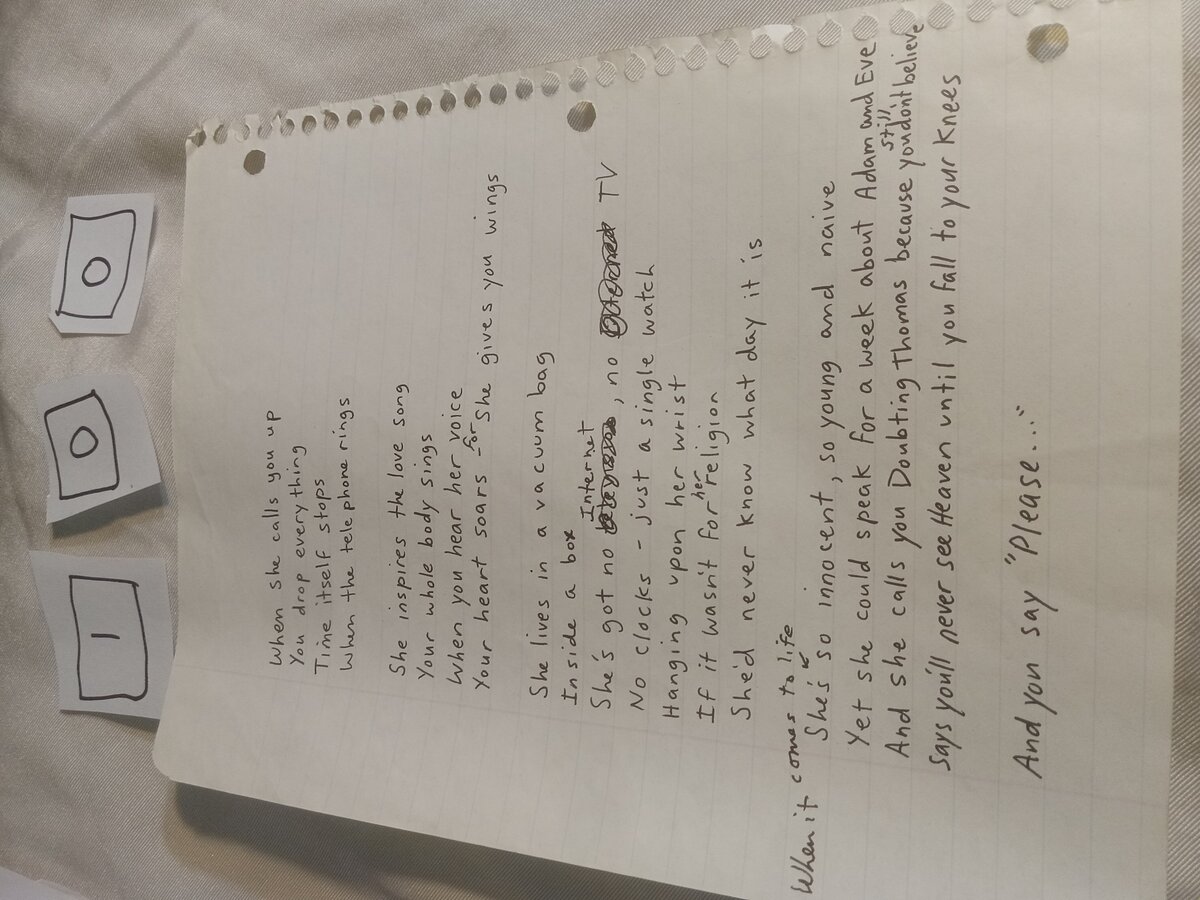 1 0 0
When she calls you up
You drop everything
Time itself stops
When the telephone rings
She inspires the love song
Your whole body sings
When you hear her voice
Your heart soars - for she gives you wings
She lives in a vacuum bag
Inside a box
She's got no Internet, no TV
No clocks - just a single watch
Hanging upon her wrist
If it wasn't for her religion
She'd never know what day it is
When it comes to life
She's so innocent, so young and naive
Yet she could speak for a week about Adam and Eve
And she calls you Doubting Thomas because you still don't believe
Says you'll never see Heaven until you fall to your knees
And you say "Please..."